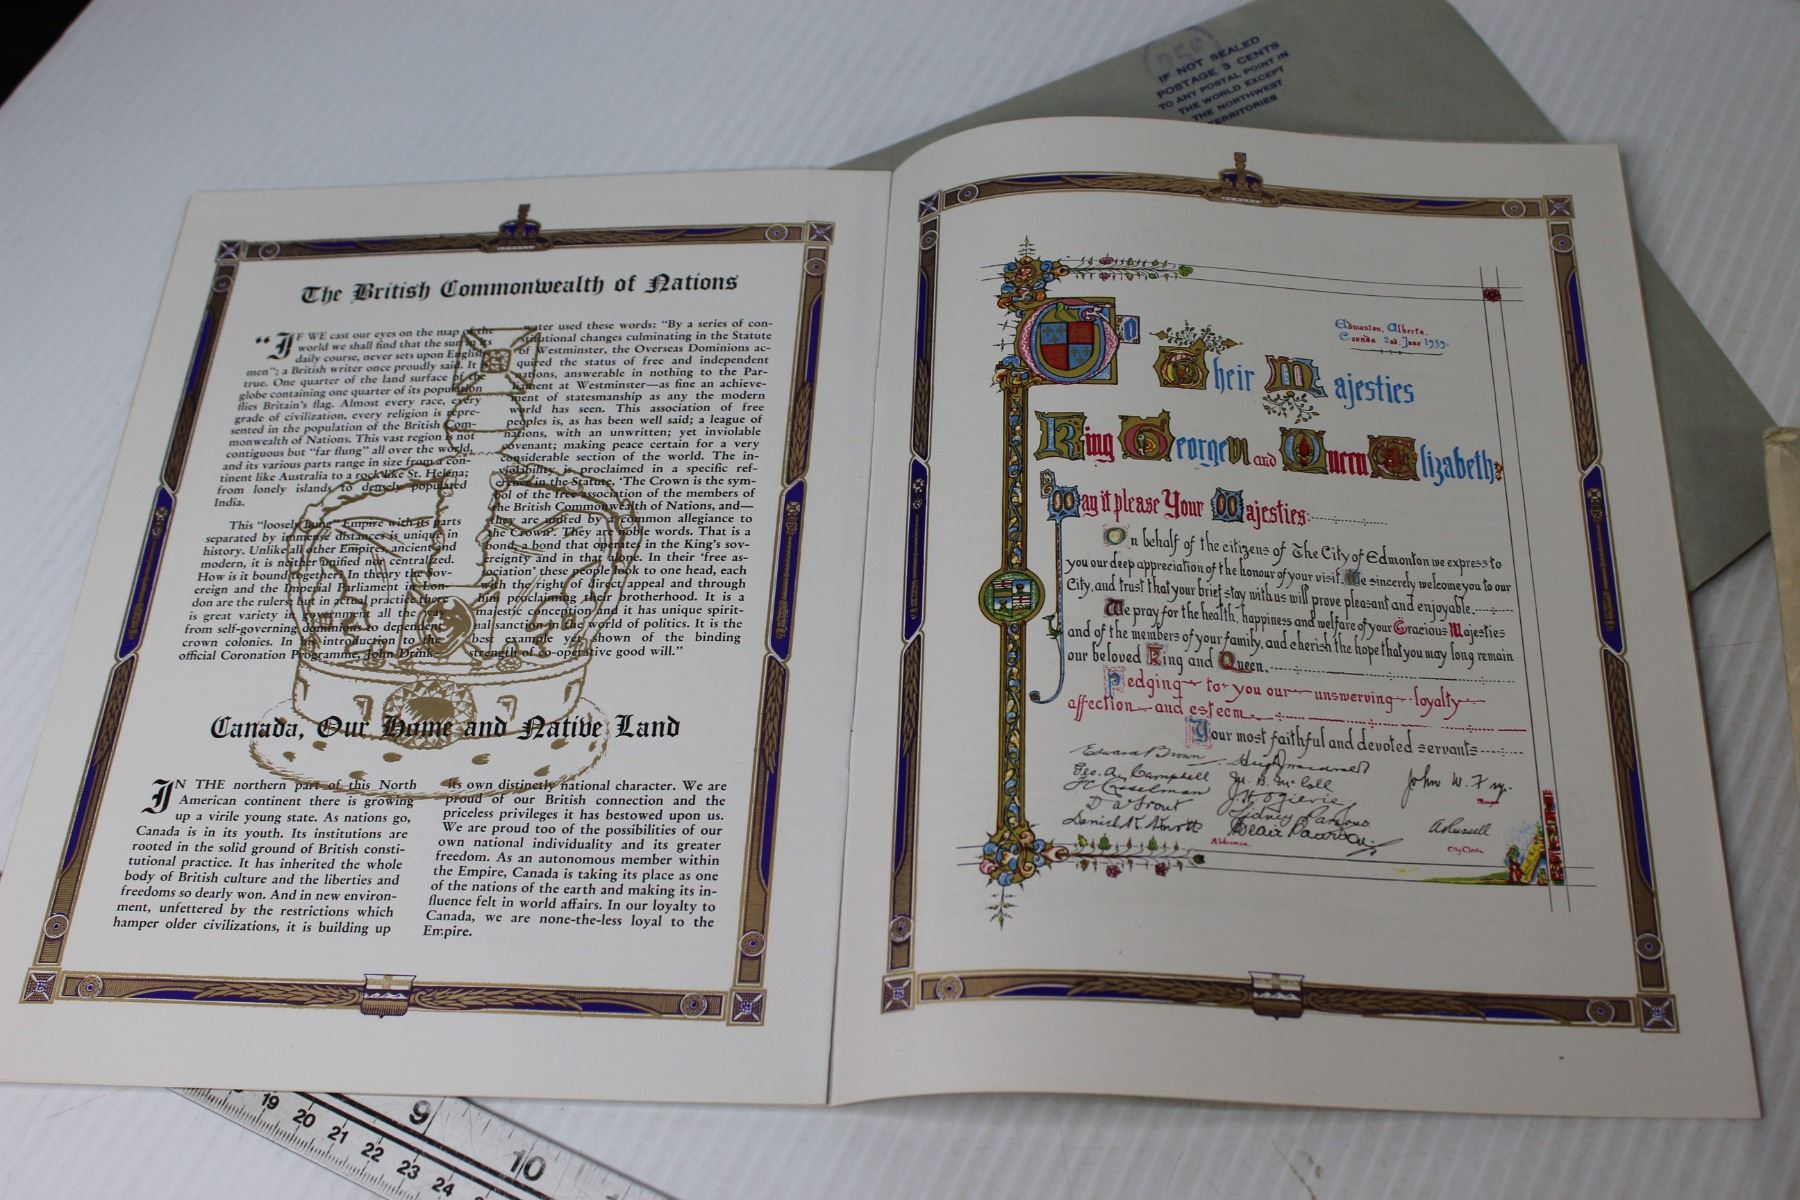 25¢
IF NOT SEALED
POSTAGE 3 CENTS
TO ANY POSTAL POINT IN
THE WORLD EXCEPT
THE NORTHWEST
TERRITORIES
The British Commonwealth of Nations
“IF WE cast our eyes on the map of the
world we shall find that the sun in its
daily course, never sets upon English-
men”; a British writer once proudly said. It is
true. One quarter of the land surface of the
globe containing one quarter of its population
flies Britain's flag. Almost every race, every
grade of civilization, every religion is repre-
sented in the population of the British Com-
monwealth of Nations. This vast region is not
contiguous but “far flung” all over the world,
and its various parts range in size from a con-
tinent like Australia to a rock like St. Helena;
from lonely islands to densely populated
India.
This “loosely hung” Empire with its parts
separated by immense distances is unique in
history. Unlike all other Empires, ancient and
modern, it is neither unified nor centralized.
How is it bound together? In theory the Sov-
ereign and the Imperial Parliament in Lon-
don are the rulers; but in actual practice there
is great variety in government all the way
from self-governing dominions to dependent
crown colonies. In his introduction to the
official Coronation Programme, John Drink-
water used these words: “By a series of con-
stitutional changes culminating in the Statute
of Westminster, the Overseas Dominions ac-
quired the status of free and independent
nations, answerable in nothing to the Par-
liament at Westminster—as fine an achieve-
ment of statesmanship as any the modern
world has seen. This association of free
peoples is, as has been well said; a league of
nations, with an unwritten; yet inviolable
covenant; making peace certain for a very
considerable section of the world. The in-
violability is proclaimed in a specific ref-
erence in the Statute. ‘The Crown is the sym-
bol of the free association of the members of
the British Commonwealth of Nations, and—
they are united by a common allegiance to
the Crown’. They are noble words. That is a
bond, a bond that operates in the King's sov-
ereignty and in that alone. In their ‘free as-
sociation’ these people look to one head, each
with the right of direct appeal and through
him proclaiming their brotherhood. It is a
majestic conception and it has unique spirit-
ual sanction in the world of politics. It is the
best example yet shown of the binding
strength of co-operative good will.”
Canada, Our Home and Native Land
IN THE northern part of this North
American continent there is growing
up a virile young state. As nations go,
Canada is in its youth. Its institutions are
rooted in the solid ground of British consti-
tutional practice. It has inherited the whole
body of British culture and the liberties and
freedoms so dearly won. And in new environ-
ment, unfettered by the restrictions which
hamper older civilizations, it is building up
its own distinctly national character. We are
proud of our British connection and the
priceless privileges it has bestowed upon us.
We are proud too of the possibilities of our
own national individuality and its greater
freedom. As an autonomous member within
the Empire, Canada is taking its place as one
of the nations of the earth and making its in-
fluence felt in world affairs. In our loyalty to
Canada, we are none-the-less loyal to the
Empire.
Edmonton, Alberta,
Canada 2nd. June 1939.
To
Their Majesties
King George VI and Queen Elizabeth:
May it please Your Majesties:
On behalf of the citizens of The City of Edmonton we express to
you our deep appreciation of the honour of your visit. We sincerely welcome you to our
City, and trust that your brief stay with us will prove pleasant and enjoyable.
We pray for the health, happiness and welfare of your Gracious Majesties
and of the members of your family, and cherish the hope that you may long remain
our beloved King and Queen.
Pledging to you our unswerving loyalty
affection and esteem
Your most faithful and devoted servants
Edward Brown
Geo. A. Campbell
D A Trout
Daniel K. Knott
Hugh Macdonald
J H Ogilvie
Sidney Parsons
Blair Paterson
Aldermen.
John W. Fry.
Mayor
A Russell
City Clerk
19 20 21 22 23 24
9 10